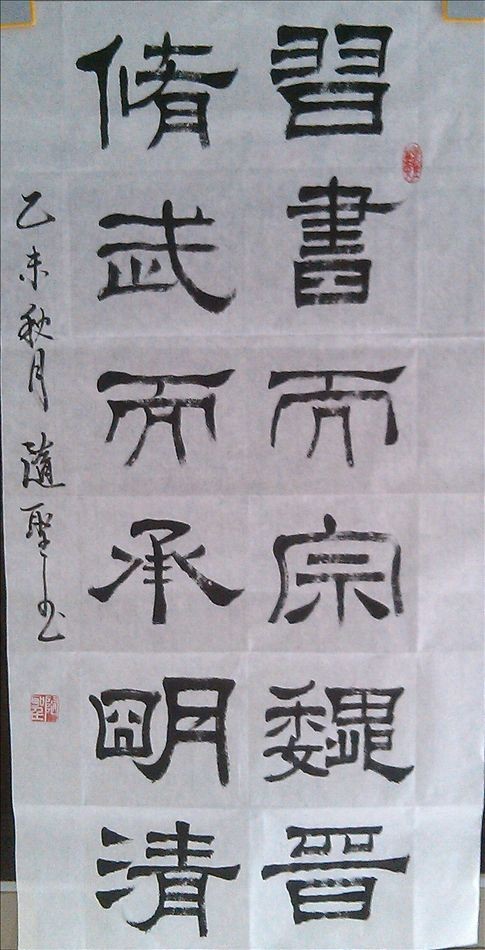 習書而宗魏晉
脩武而承明清
乙未秋月隨聖书